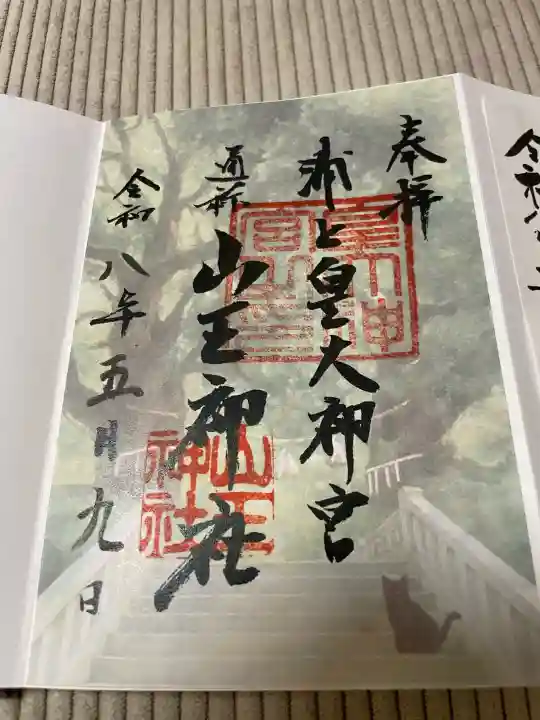 令和八
奉拝
浦上皇大神宮
通称 山王神社
令和八年五月九日
皇大神
宮
山王
神社